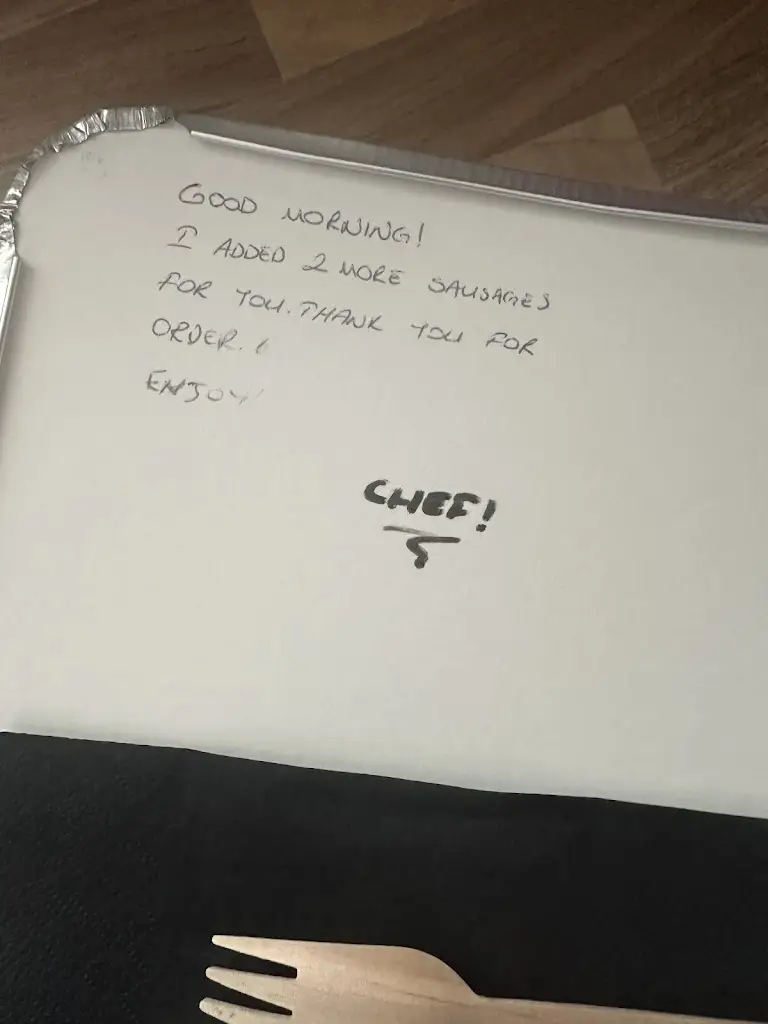 GOOD MORNING!
I ADDED 2 MORE SAUSAGES
FOR YOU. THANK YOU FOR
ORDER.
ENJOY
CHEF!